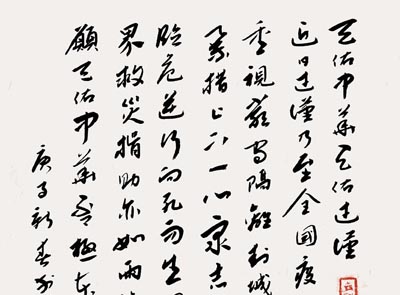 天佑中華天佑武漢
近日武漢乃至全國疫
重視嚴守隔離封城
措上下一心眾志
臨危逆行向死而生
界救災捐助亦如雨
願天佑中華否極泰
庚子新春